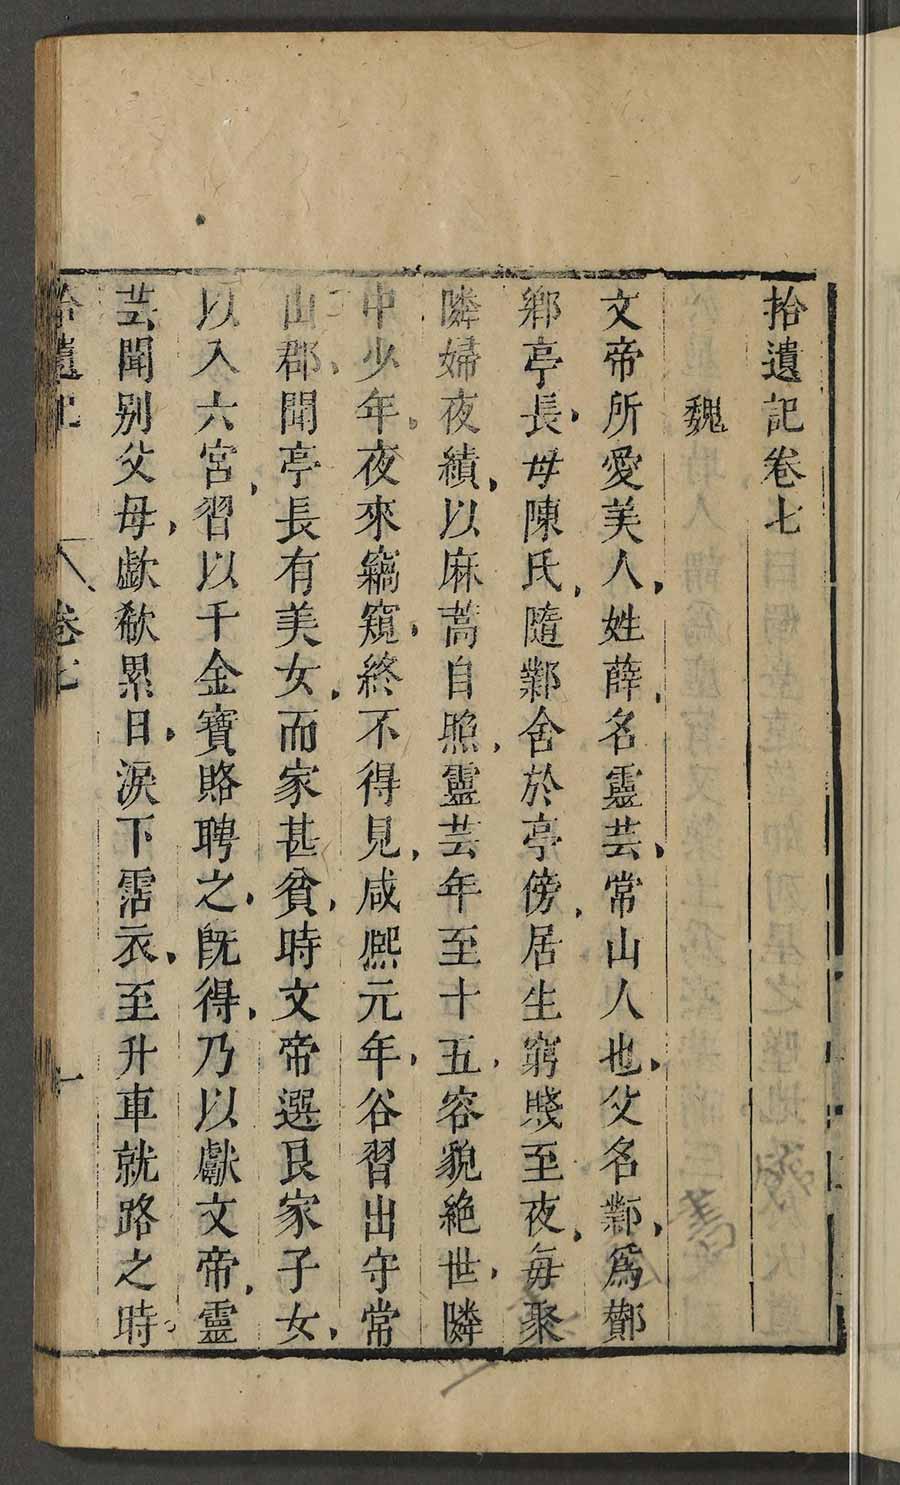 拾遺記卷七
魏
文帝所愛美人姓薛名靈芸常山人也父名鄴爲酇
鄉亭長母陳氏隨鄴舍於亭傍居生窮賤至夜每聚
隣婦夜績以麻蒿自照靈芸年至十五容貌絶世隣
中少年夜來竊窺終不得見咸熙元年谷習出守常
山郡聞亭長有美女而家甚貧時文帝選良家子女
以入六宮習以千金寶賂聘之旣得乃以獻文帝靈
芸聞别父母歔欷累日淚下霑衣至升車就路之時
拾遺記 卷七 一